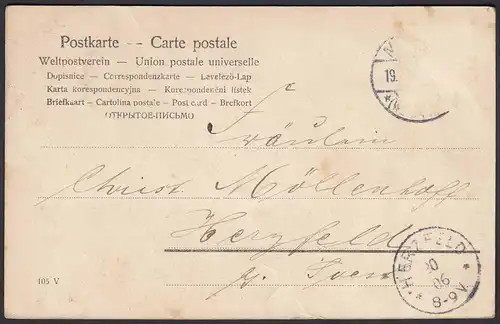 Postkarte -- Carte postale
Weltpostverein — Union postale universelle
Dopisnice — Correspondenzkarte — Levelező-Lap
Karta korespondencyjna — Korespondenční lístek
Briefkaart — Cartolina postale — Post card — Brefkort
ОТКРЫТОЕ-ПИСЬМО
19.
Fräulein
Christ. Möllenhoff
Herzfeld
b/ Soest
105 V
* HERZFELD *
06
8-9 V.